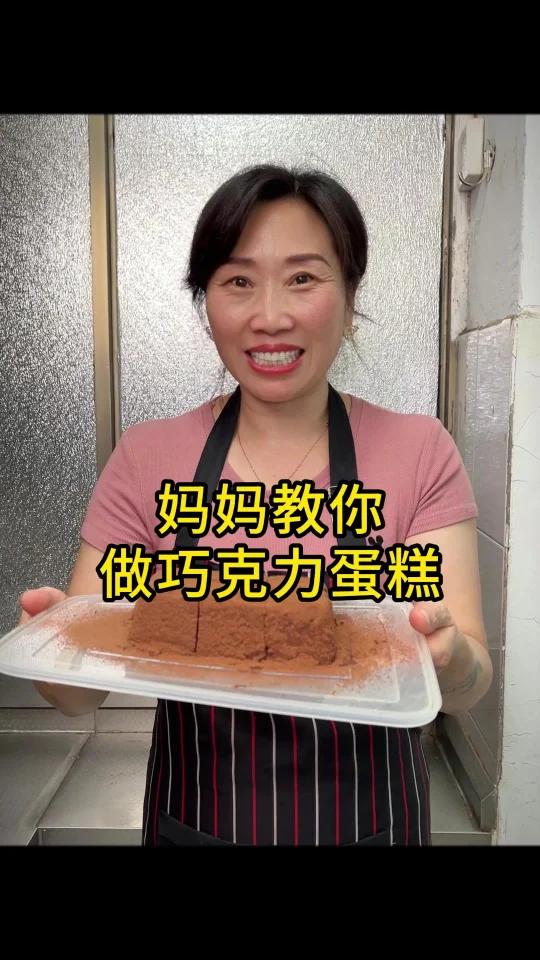 妈妈教你
做巧克力蛋糕